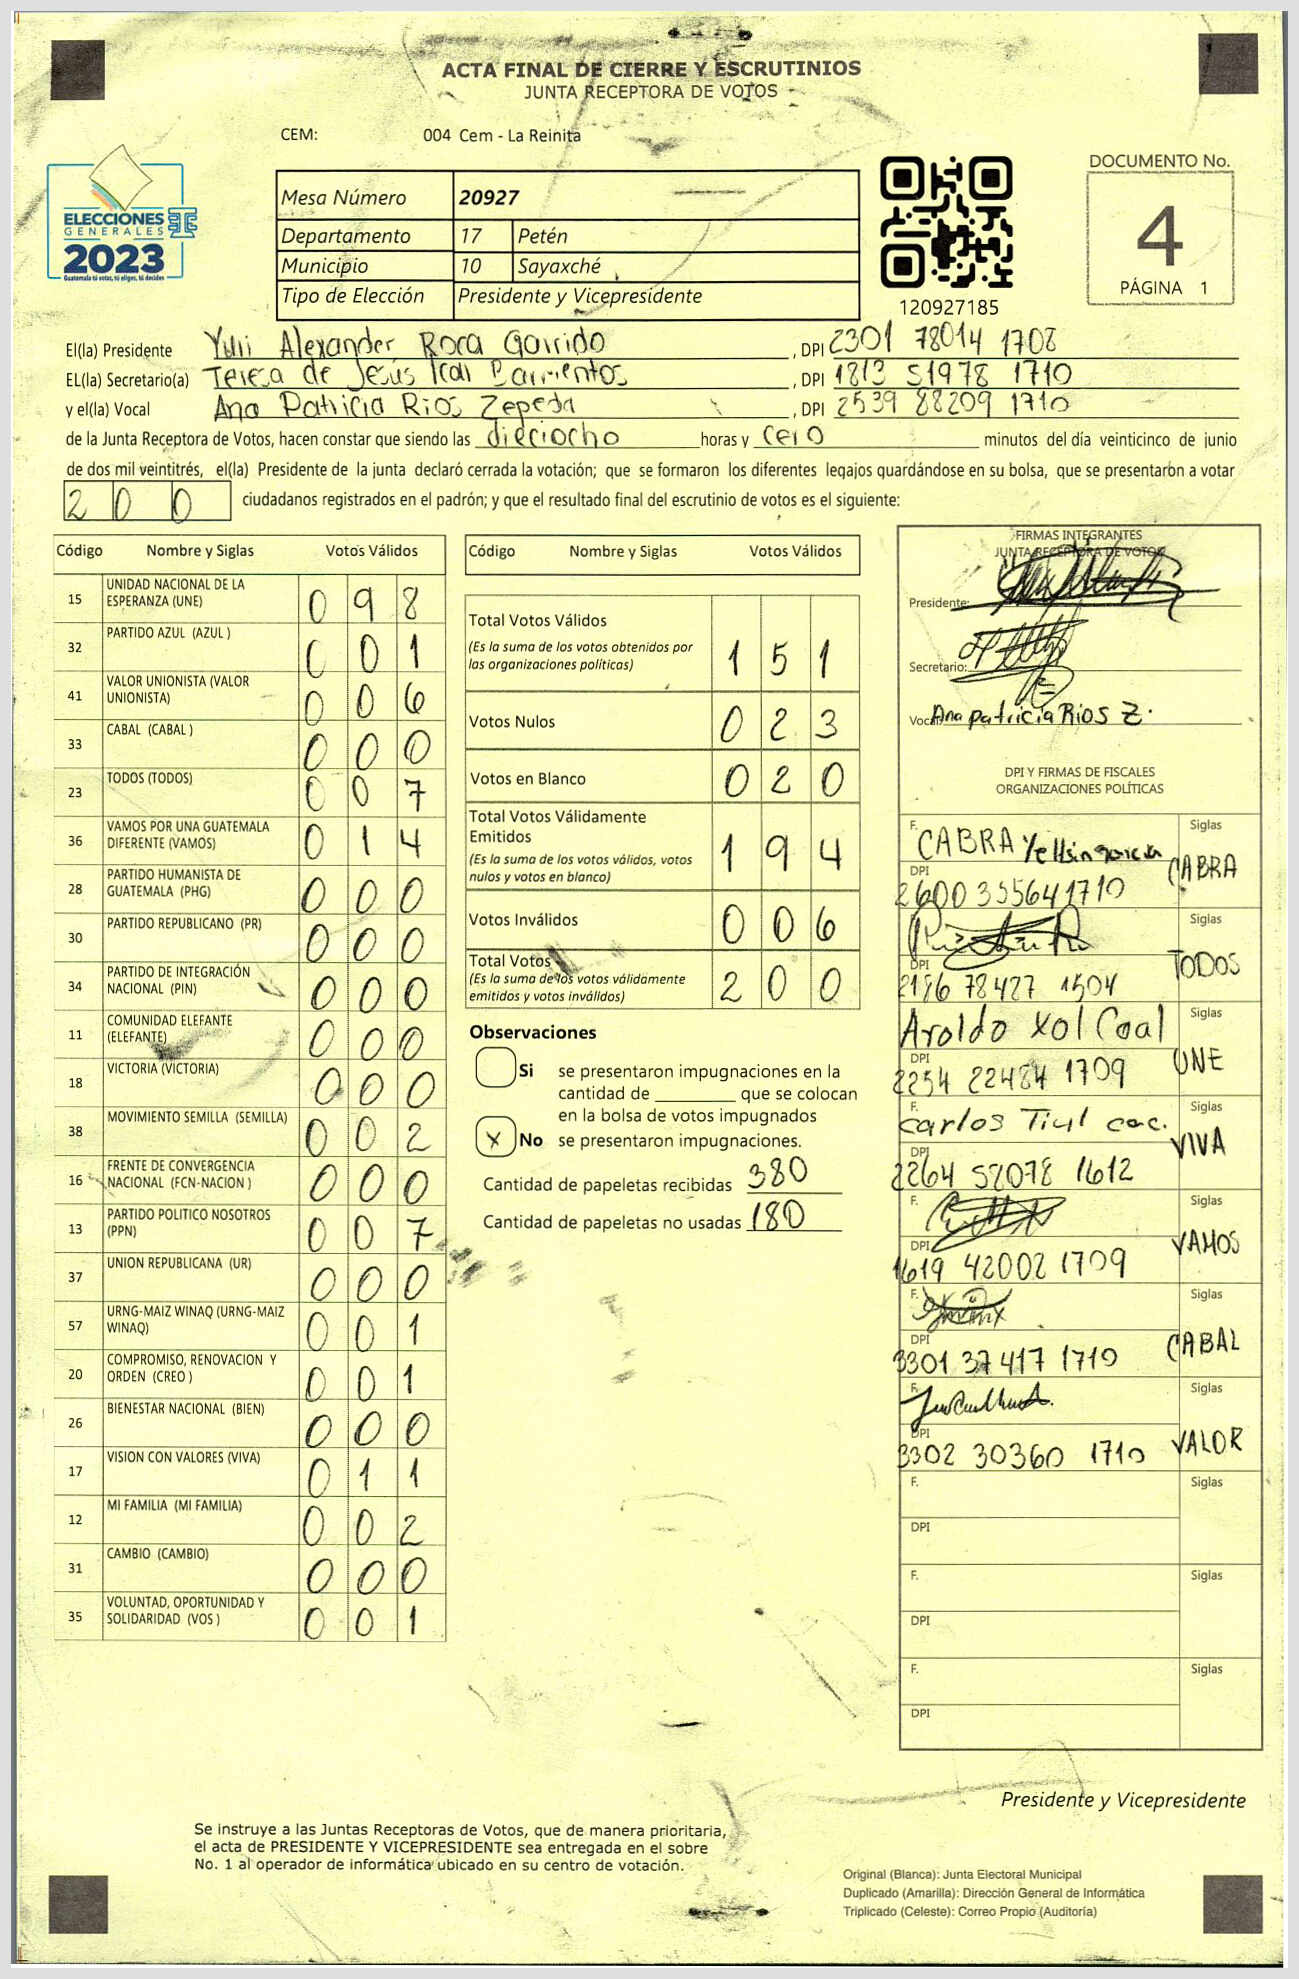 ACTA FINAL DE CIERRE Y ESCRUTINIOS
JUNTA RECEPTORA DE VOTOS
CEM: 004 Cem - La Reinita
ELECCIONES
GENERALES
2023
Guatemala tú votas, tú eliges, tú decides
Mesa Número 20927
Departamento 17 Petén
Municipio 10 Sayaxché
Tipo de Elección Presidente y Vicepresidente
120927185
DOCUMENTO No.
4
PÁGINA 1
El(la) Presidente Yuli Alexander Roca Garrido, DPI 2301 78014 1708
EL(la) Secretario(a) Teresa de Jesús Ical Barrientos, DPI 1813 51978 1710
y el(la) Vocal Ana Patricia Rios Zepeda, DPI 2539 88209 1710
de la Junta Receptora de Votos, hacen constar que siendo las dieciocho horas y cero minutos del día veinticinco de junio
de dos mil veintitrés, el(la) Presidente de la junta declaró cerrada la votación; que se formaron los diferentes legajos guardándose en su bolsa, que se presentaron a votar
200 ciudadanos registrados en el padrón; y que el resultado final del escrutinio de votos es el siguiente:
Código Nombre y Siglas Votos Válidos
15 UNIDAD NACIONAL DE LA ESPERANZA (UNE) 0 9 8
32 PARTIDO AZUL (AZUL ) 0 0 1
41 VALOR UNIONISTA (VALOR UNIONISTA) 0 0 6
33 CABAL (CABAL ) 0 0 0
23 TODOS (TODOS) 0 0 7
36 VAMOS POR UNA GUATEMALA DIFERENTE (VAMOS) 0 1 4
28 PARTIDO HUMANISTA DE GUATEMALA (PHG) 0 0 0
30 PARTIDO REPUBLICANO (PR) 0 0 0
34 PARTIDO DE INTEGRACIÓN NACIONAL (PIN) 0 0 0
11 COMUNIDAD ELEFANTE (ELEFANTE) 0 0 0
18 VICTORIA (VICTORIA) 0 0 0
38 MOVIMIENTO SEMILLA (SEMILLA) 0 0 2
16 FRENTE DE CONVERGENCIA NACIONAL (FCN-NACION ) 0 0 0
13 PARTIDO POLITICO NOSOTROS (PPN) 0 0 7
37 UNION REPUBLICANA (UR) 0 0 0
57 URNG-MAIZ WINAQ (URNG-MAIZ WINAQ) 0 0 1
20 COMPROMISO, RENOVACION Y ORDEN (CREO ) 0 0 1
26 BIENESTAR NACIONAL (BIEN) 0 0 0
17 VISION CON VALORES (VIVA) 0 1 1
12 MI FAMILIA (MI FAMILIA) 0 0 2
31 CAMBIO (CAMBIO) 0 0 0
35 VOLUNTAD, OPORTUNIDAD Y SOLIDARIDAD (VOS ) 0 0 1
Código Nombre y Siglas Votos Válidos
Total Votos Válidos
(Es la suma de los votos obtenidos por las organizaciones politicas) 1 5 1
Votos Nulos 0 2 3
Votos en Blanco 0 2 0
Total Votos Válidamente Emitidos
(Es la suma de los votos válidos, votos nulos y votos en blanco) 1 9 4
Votos Inválidos 0 0 6
Total Votos
(Es la suma de los votos válidamente emitidos y votos inválidos) 2 0 0
Observaciones
Si se presentaron impugnaciones en la
cantidad de ________ que se colocan
en la bolsa de votos impugnados
X No se presentaron impugnaciones.
Cantidad de papeletas recibidas 380
Cantidad de papeletas no usadas 180
FIRMAS INTEGRANTES
JUNTA RECEPTORA DE VOTOS
Presidente:
Secretario:
Vocal Ana patricia Rios Z.
DPI Y FIRMAS DE FISCALES
ORGANIZACIONES POLÍTICAS
F. CABRA Yeltsin garcia Siglas CABRA
DPI 2600 35564 1710
Siglas TODOS
DPI 2186 78427 1504
Aroldo Xol Caal Siglas UNE
DPI 2254 22484 1709
F. carlos Tiul cac. Siglas VIVA
DPI 2264 52078 1612
F. Siglas VAMOS
DPI 1619 42002 1709
F. Siglas CABAL
DPI 3301 37417 1710
F. Siglas VALOR
DPI 3302 30360 1710
F. Siglas
DPI
F. Siglas
DPI
F. Siglas
DPI
Presidente y Vicepresidente
Se instruye a las Juntas Receptoras de Votos, que de manera prioritaria,
el acta de PRESIDENTE Y VICEPRESIDENTE sea entregada en el sobre
No. 1 al operador de informática ubicado en su centro de votación.
Original (Blanca): Junta Electoral Municipal
Duplicado (Amarilla): Dirección General de Informática
Triplicado (Celeste): Correo Propio (Auditoría)